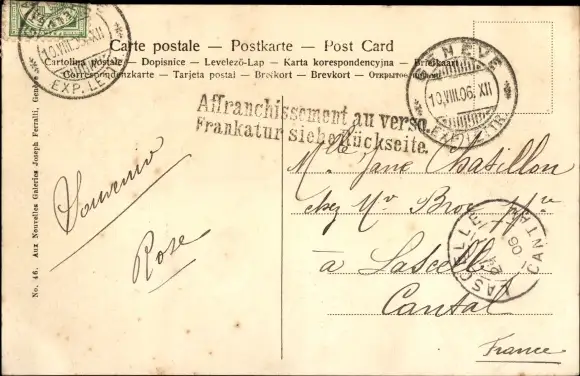 Carte postale – Postkarte – Post Card
Cartolina postale – Dopisnice – Levelező-Lap – Karta korespondencyjna – Briefkaart
Correspondenzkarte – Tarjeta postal – Brefkort – Brevkort – Открытое
GENÈVE
10.VIII.06. XII
EXP. LETTR.
10.VIII.06. XII
EXP. LETTR.
Affranchissement au verso.
Frankatur siehe Rückseite.
Souvenir
Rose
Mlle Jane Chatillon
chez Mr Broc
à Lascelle
Cantal
France
LASCELLE
CANTAL
06
No. 46. Aux Nouvelles Galeries Joseph Perralli, Genève